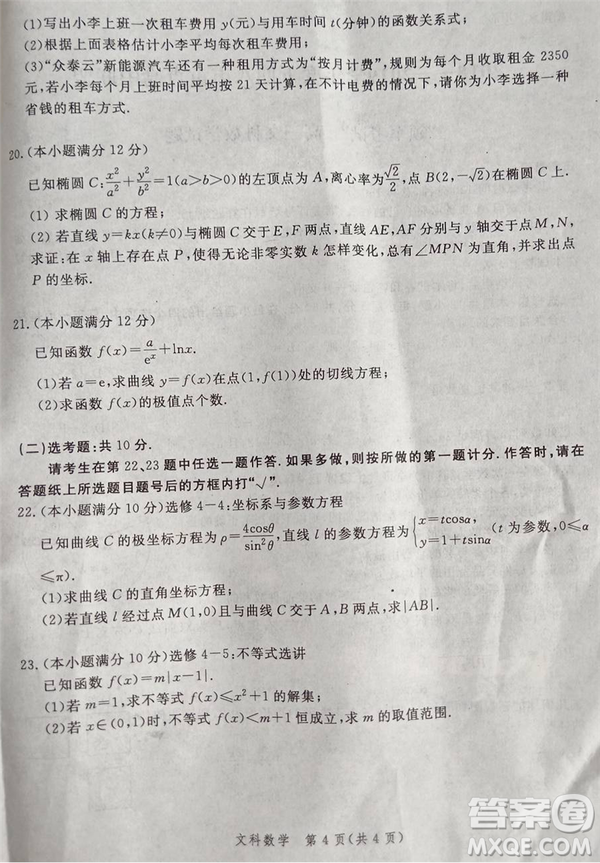 (1)写出小李上班一次租车费用 y(元)与用车时间 t(分钟)的函数关系式;
(2)根据上面表格估计小李平均每次租车费用;
(3)“众泰云”新能源汽车还有一种租用方式为“按月计费”,规则为每个月收取租金 2350
元,若小李每个月上班时间平均按 21 天计算,在不计电费的情况下,请你为小李选择
省钱的租车方式.
20.(本小题满分 12 分)
已知椭圆 C:x²/a²+y²/b²=1(a>b>0)的左顶点为 A,离心率为√2/2,点 B(2,-√2)在椭圆 C 上.
(1)求椭圆 C 的方程;
(2)若直线 y=kx(k≠0)与椭圆 C 交于 E,F 两点,直线 AE,AF 分别与 y 轴交于点 M,N,
求证:在 x 轴上存在点 P,使得无论非零实数 k 怎样变化,总有∠MPN 为直角,并求出点
P 的坐标.
21.(本小题满分 12 分)
已知函数 f(x)=a/eˣ+lnx.
(1)若 a=e,求曲线 y=f(x)在点(1,f(1))处的切线方程;
(2)求函数 f(x)的极值点个数.
(二)选考题:共 10 分.
请考生在第 22、23 题中任选一题作答.如果多做,则按所做的第一题计分.作答时,要在
答题纸上所选题目题号后的方框内打“√”.
22.(本小题满分 10 分)选修 4-4:坐标系与参数方程
已知曲线 C 的极坐标方程为 ρ=4cosθ/sin²θ,直线 l 的参数方程为{x=tcosα, y=1+tsinα (t 为参数,0≤α
≤π).
(1)求曲线 C 的直角坐标方程;
(2)若直线 l 经过点 M(1,0)且与曲线 C 交于 A,B 两点,求|AB|.
23.(本小题满分 10 分)选修 4-5:不等式选讲
已知函数 f(x)=m|x-1|.
(1)若 m=1,求不等式 f(x)≤x²+1 的解集;
(2)若 x∈(0,1)时,不等式 f(x)<m+1 恒成立,求 m 的取值范围.
文科数学 第 4 页(共 4 页)
答案圈
MXQE.COM